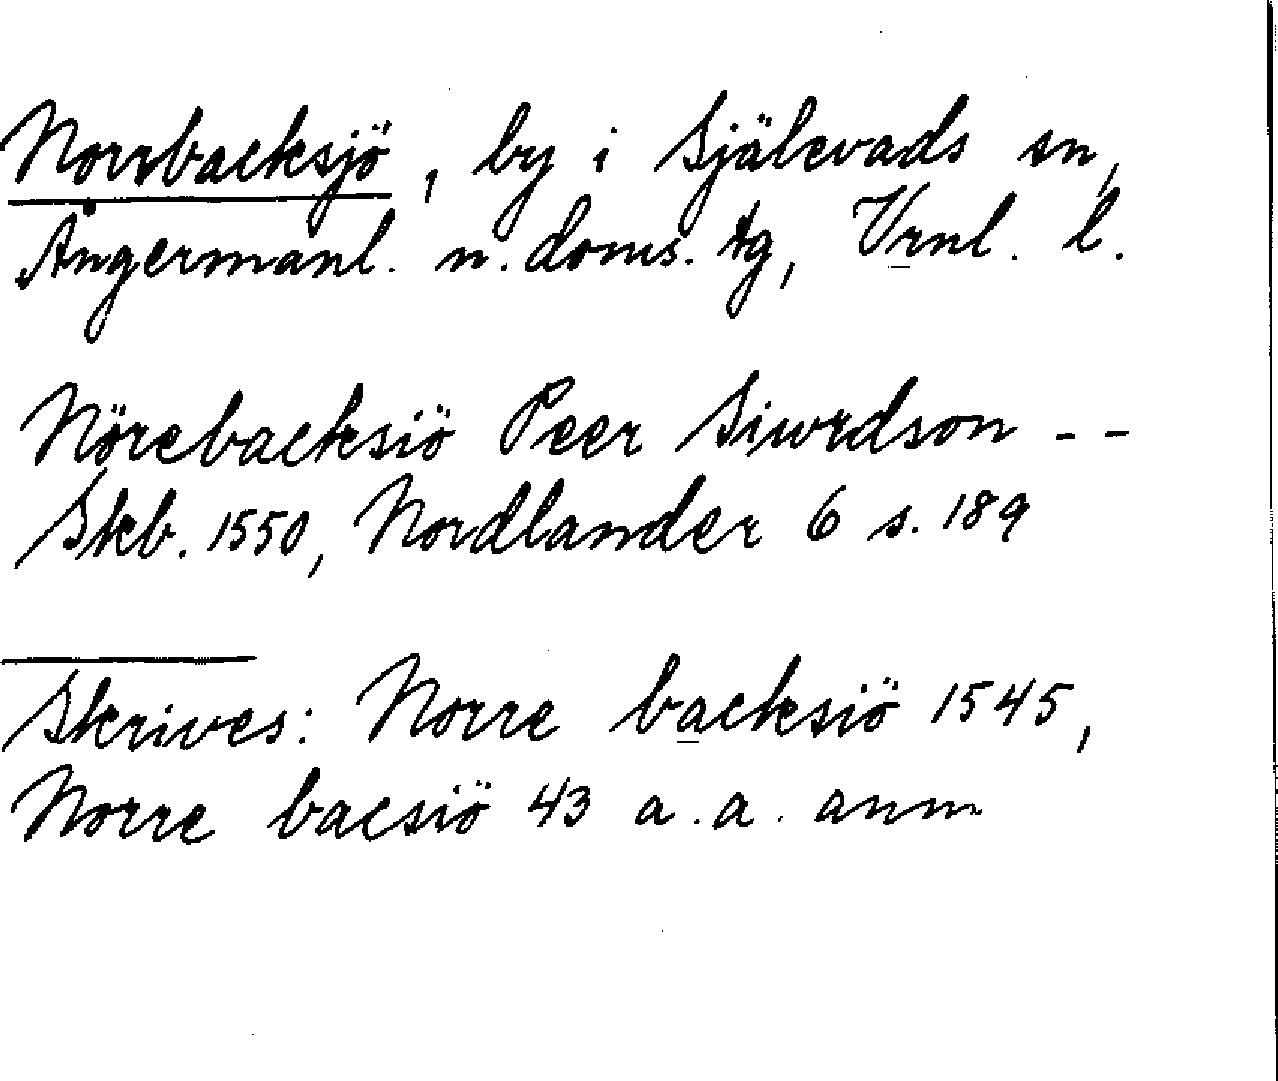 Norrbacksjö, by i Själevads sn,
Ångermanl. n. doms. tg, Vrnl. l.
Nörebacksiö Peer Siwrdson - -
Skb. 1550, Nordlander 6 s. 189
Skrives: Norre backsiö 1545,
Norre bacsiö 43 a. a. anm